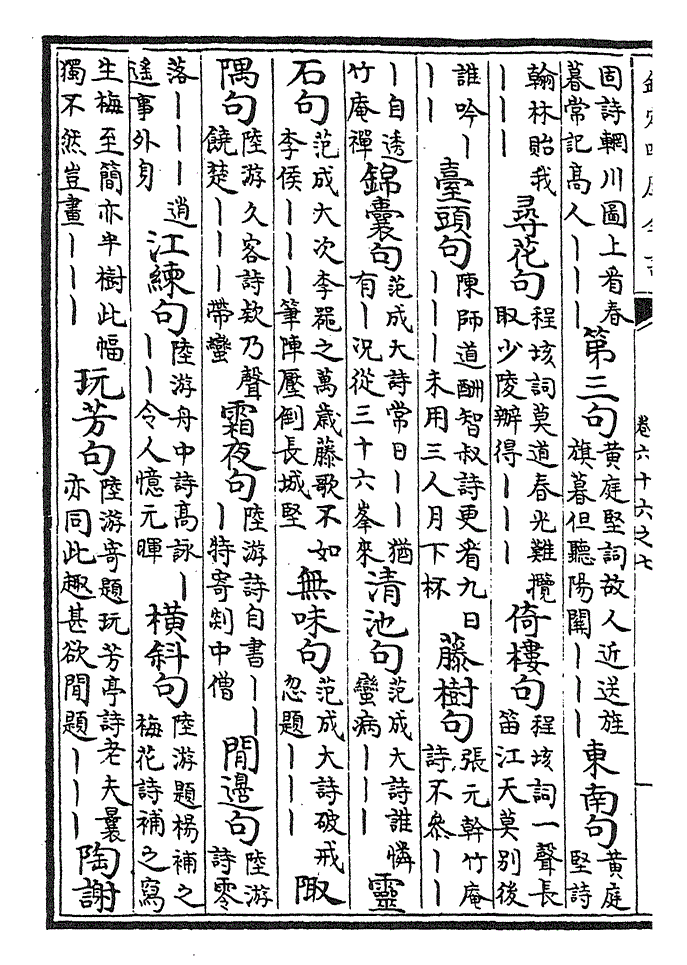 卷六十六之七
固詩輞川圖上看春暮常記高人｜｜｜第三句黃庭堅詞故人近送旌旗暮但聽陽關｜｜｜東南句黃庭堅詩
翰林貽我｜｜｜尋花句程垓詞莫道春光難攬取少陵辦得｜｜｜倚樓句程垓詞一聲長笛江天莫別後
誰吟｜｜｜臺頭句陳師道酬智叔詩更看九日｜｜｜未用三人月下杯藤樹句張元幹竹庵詩不參｜｜
｜自透竹庵禪錦囊句范成大詩常日｜｜猶有｜况從三十六峯來清池句范成大詩誰憐蠻病｜｜｜靈
石句范成大次李器之萬歲藤歌不如李侯｜｜｜筆陣壓倒長城堅無味句范成大詩破戒忽題｜｜｜陬
隅句陸游久客詩欸乃聲饒楚｜｜｜帶蠻霜夜句陸游詩自書｜｜｜特寄剡中僧閒邊句陸游詩零
落｜｜｜逍遙事外身江練句陸游舟中詩高詠｜｜｜令人憶元暉橫斜句陸游題楊補之梅花詩補之寫
生梅至簡亦半樹此幅獨不然豈畫｜｜｜玩芳句陸游寄題玩芳亭詩老夫曩亦同此趣甚欲閒題｜｜｜陶謝